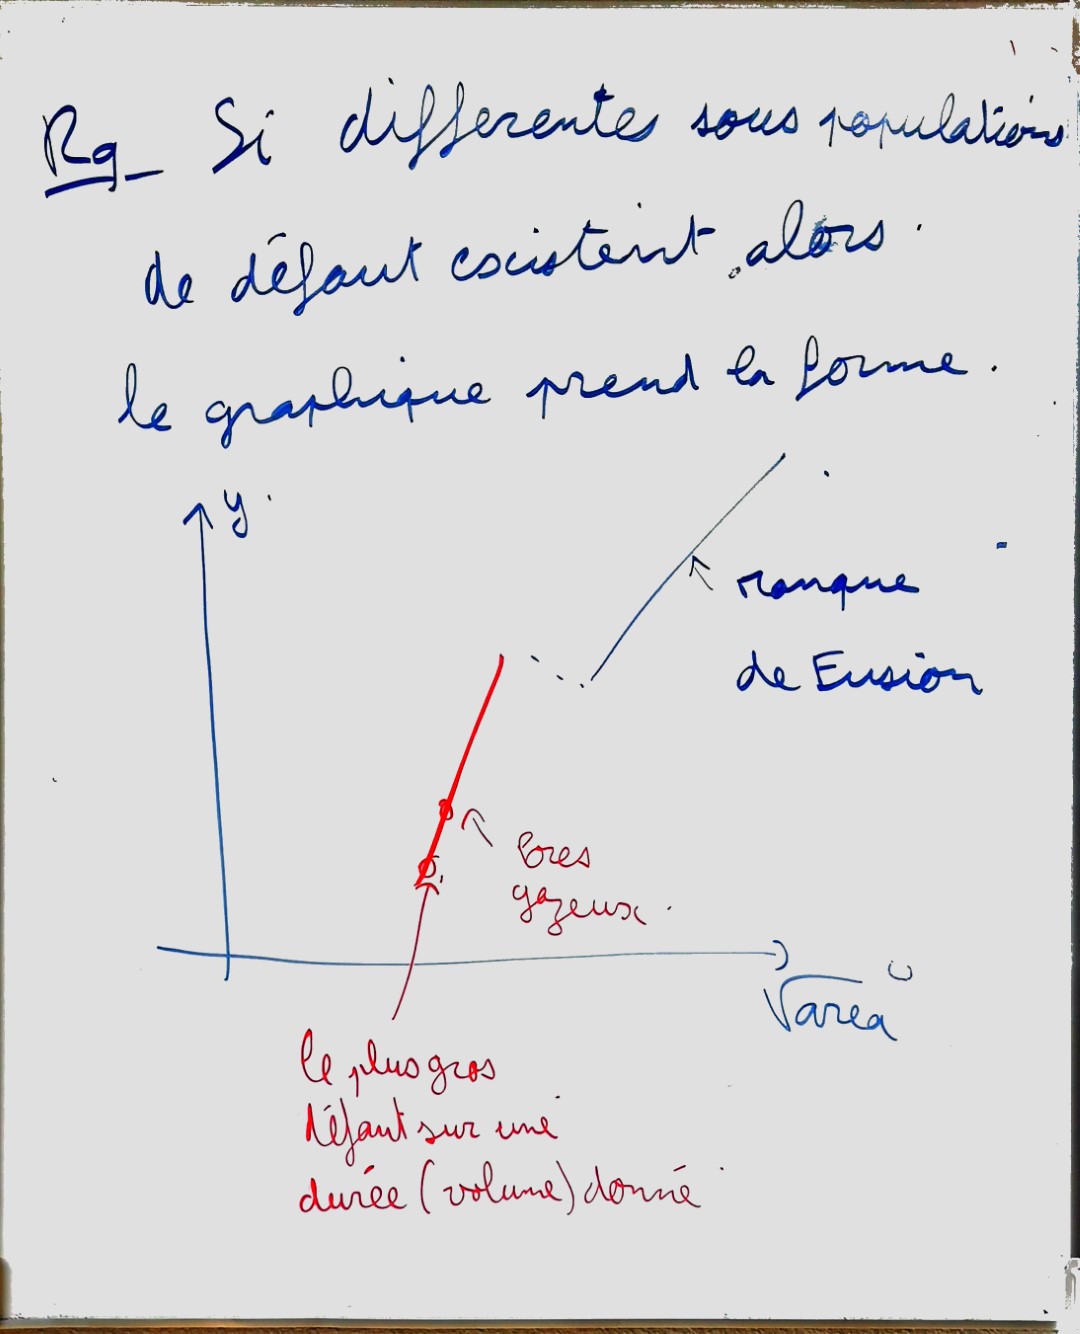 Rq_ Si differentes sous populations
de défaut coexistent, alors
le graphique prend la forme.
y
manque
de Fusion
Pores
gazeux.
√area
le plus gros
défaut sur une
durée (volume) donné